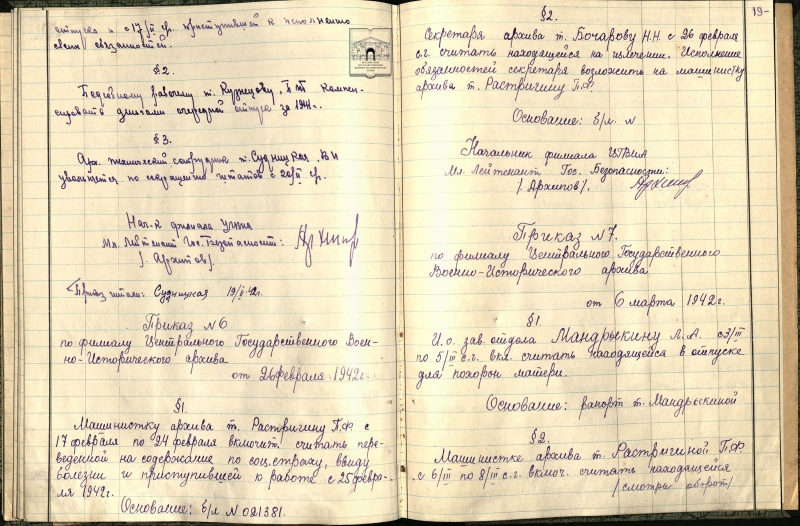 отпуска и с 17/II с.г. приступившей к исполнению
своих обязанностей.
§2.
Бедовому рабочему т. Кузнецову, компен-
сировать деньгами очередной отпуск за 1941 г.
§3.
Арх. технический сотрудник т. Судницкая В.И
увольняется по сокращению штатов с 20/II с.г.
Нач-к филиала
Мл. Лейтенант Гос. Безопасности:
/Архипов/.
Приказ читали: Судницкая 19/II-42г.
Приказ №6
по филиалу Центрального Государственного Воен-
но-Исторического архива
от 26 февраля 1942 г.
§1.
Машинистку архива т. Растригину П.Ф с
17 февраля по 24 февраля включит. считать пере-
веденной на содержание по соц.страху, ввиду
болезни и приступившей к работе с 25 февра-
ля 1942г.
Основание: б/л N 021381.
19-
§2.
Секретаря архива т. Бочарову Н.Н с 26 февраля
с.г. считать находящейся на излечении. Исполнение
обязанностей секретаря возложить на машинистку
архива т. Растригину П.Ф.
Основание: б/л. N
Начальник филиала ЦГВИА
Мл. Лейтенант Гос. Безопасности:
/Архипов/.
Приказ N7.
по филиалу Центрального Государственного
Военно-Исторического архива
от 6 марта 1942г.
§1.
И.о. зав. отдела Мандрыкину Л.А. с 3/III
по 5/III с.г. вкл. считать находящейся в отпуске
для похорон матери.
Основание: рапорт т. Мандрыкиной
§2.
Машинистке архива т. Растригиной П.Ф
с 6/III по 8/III с.г. включ. считать находящейся
/смотри оборот/